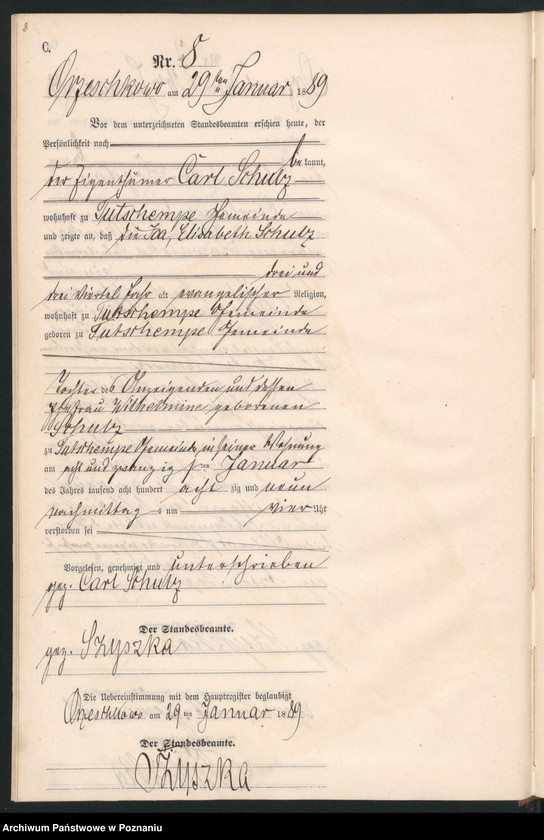 8
C.
Nr. 8
Orzeschkowo am 29ten Januar 1889
Vor dem unterzeichneten Standesbeamten erschien heute, der
Persönlichkeit nach
bekannt,
der Eigenthümer Carl Schulz
wohnhaft zu Tutschempe Gemeinde
und zeigte an, daß die Ida, Elisabeth Schulz
drei und
drei Viertel Jahr alt evangelischer Religion,
wohnhaft zu Tutschempe Gemeinde
geboren zu Tutschempe Gemeinde
Tochter des Anzeigenden und dessen
Ehefrau Wilhelmine geborenen
Schulz
zu Tutschempe Gemeinde, in seiner Wohnung
am acht und zwanzigsten Januar
des Jahres tausend acht hundert achtzig und neun
Nachmittags um vier Uhr
verstorben sei
Vorgelesen, genehmigt und unterschrieben
gez. Carl Schulz
Der Standesbeamte.
gez. Szyszka
Die Uebereinstimmung mit dem Hauptregister beglaubigt
Orzeschkowo am 29ten Januar 1889
Der Standesbeamte.
Szyszka
Archiwum Państwowe w Poznaniu